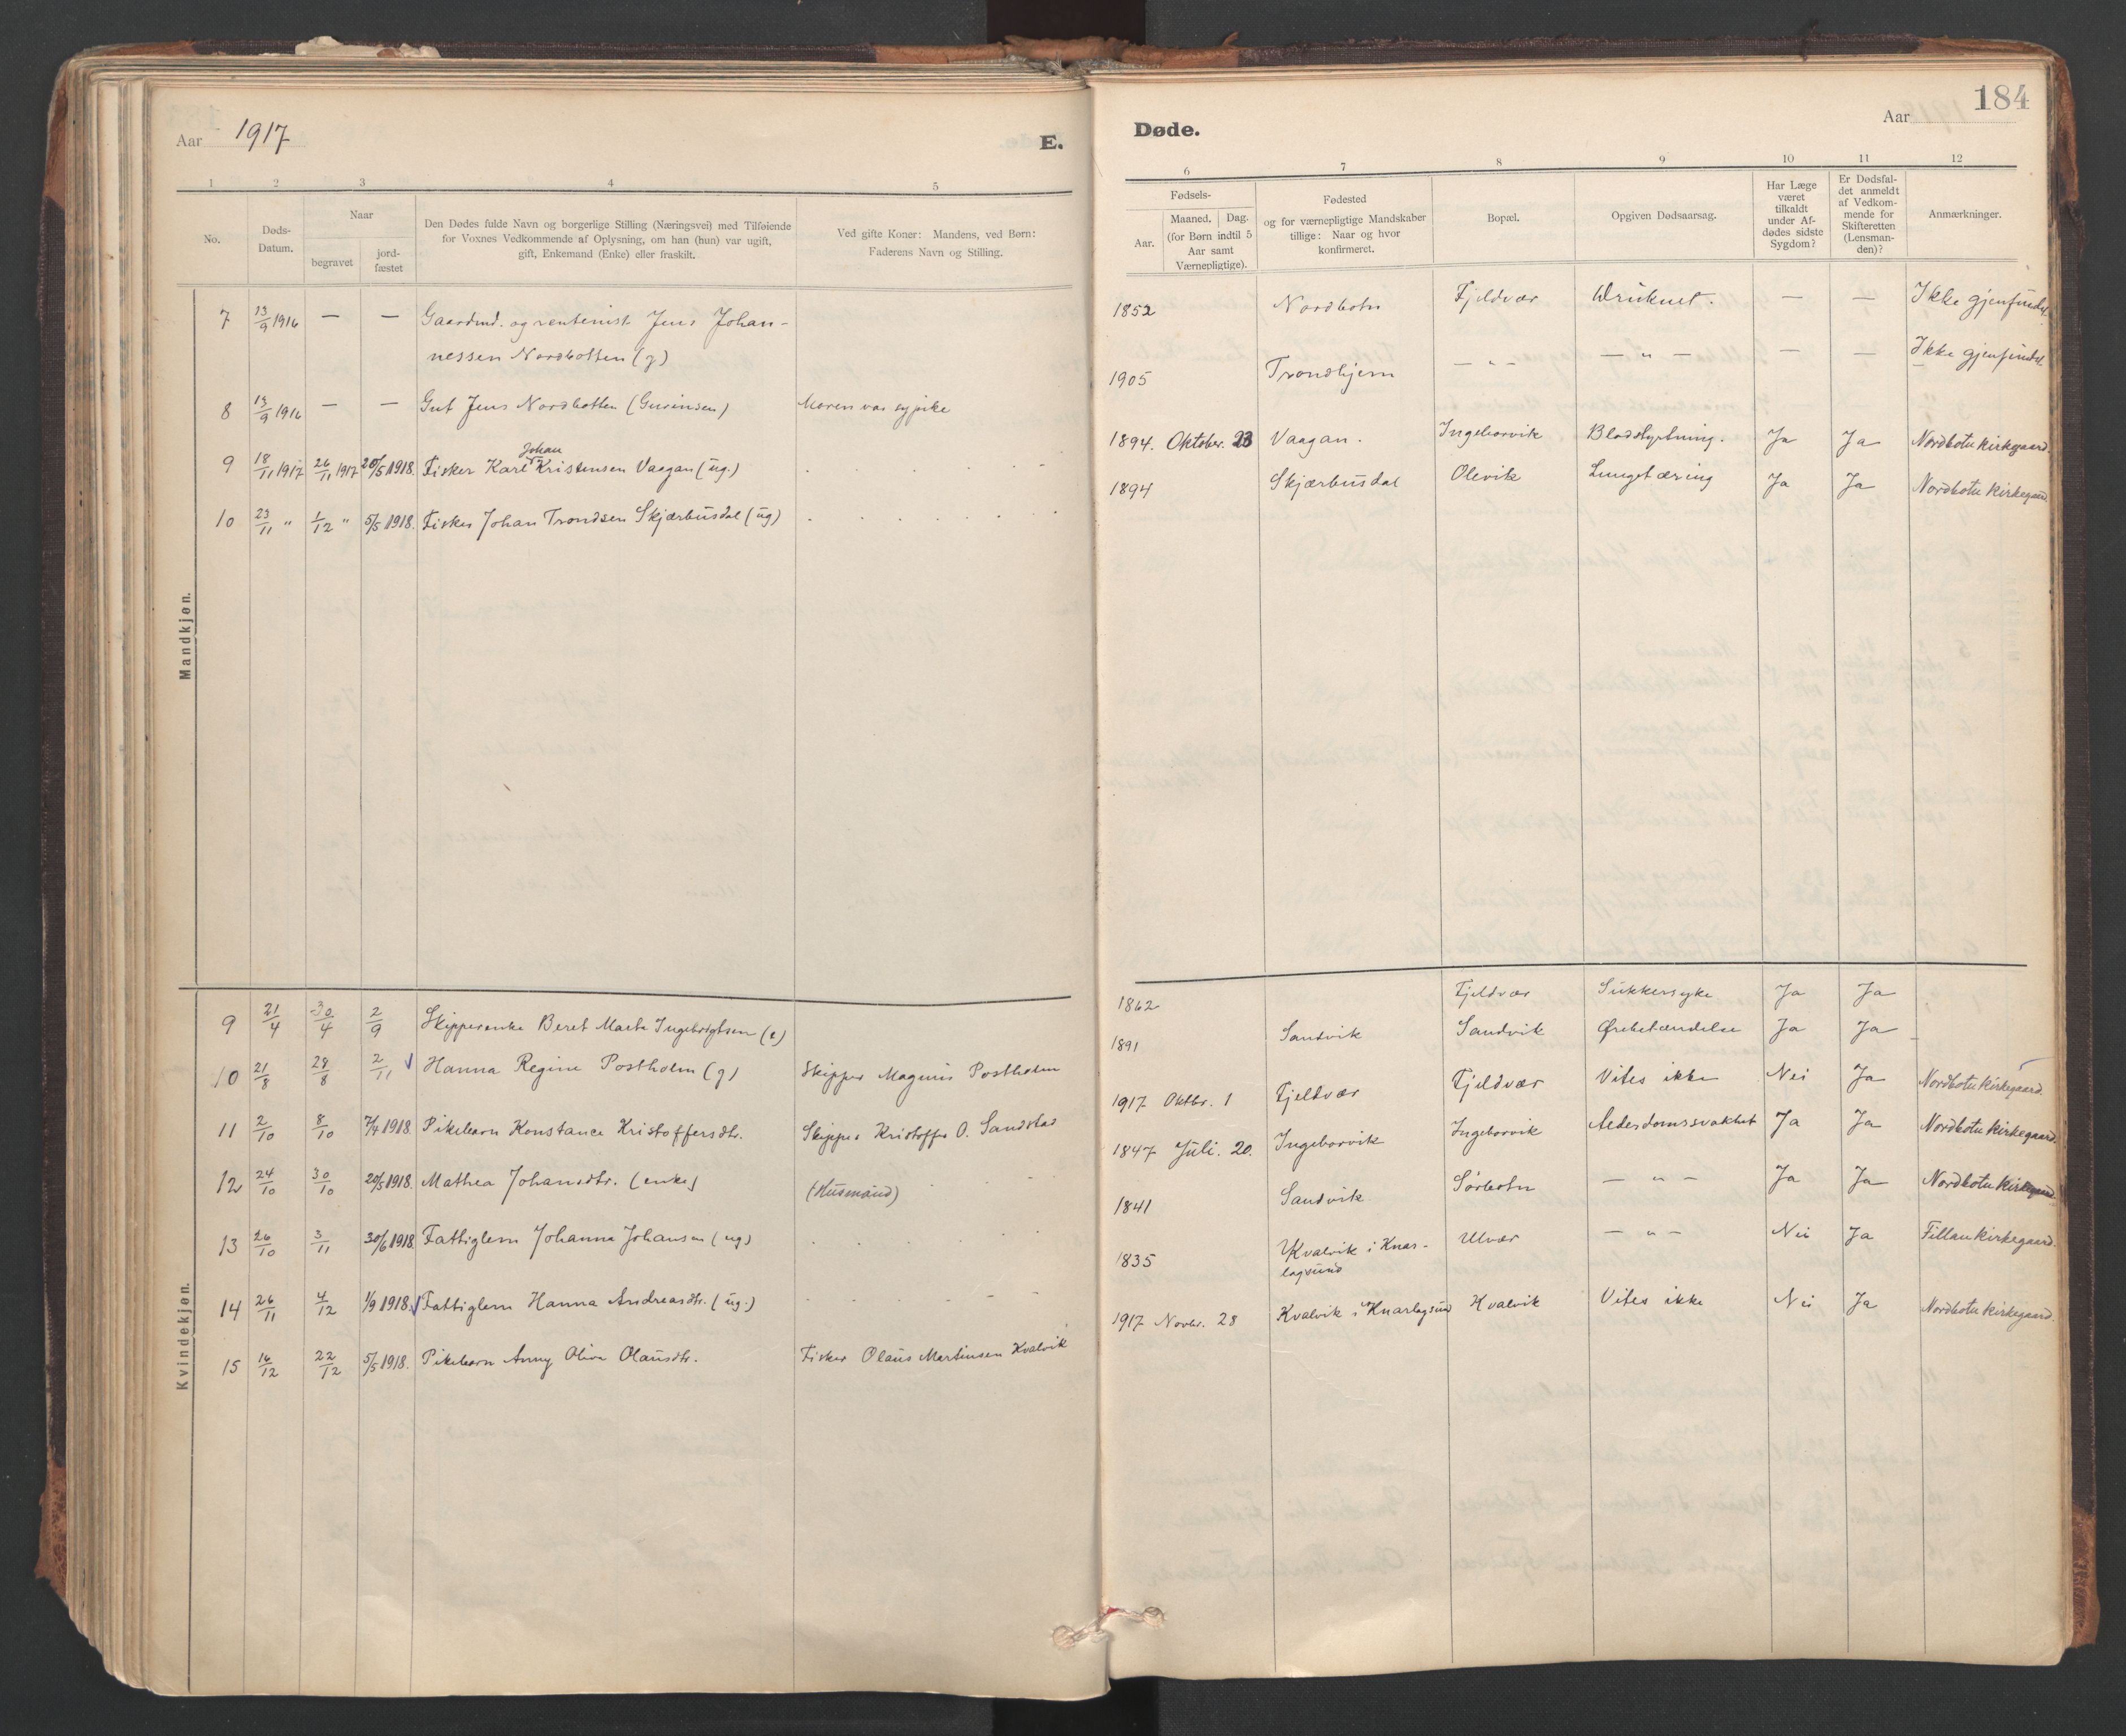 Aar 1917
E.
1 2 3 4 5
No.
Døds-
Datum.
Naar
begravet
jord-
fæstet
Den Dødes fulde Navn og borgerlige Stilling (Næringsvei) med Tilføiende
for Voxnes Vedkommende af Oplysning, om han (hun) var ugift,
gift, Enkemand (Enke) eller fraskilt.
Ved gifte Koner: Mandens, ved Børn:
Faderens Navn og Stilling.
Mandkjøn.
7 13/9 1916 — — Gaardmd. og rentenist Jens Johan-
nessen Nordbotten (g)
8 13/9 1916 — — Gut Jens Nordbotten (Gurinsen) Moren var sypike
Johan
9 18/11 1917 26/11 1917 20/5 1918. Fisker Karl Kristensen Vaagan (ug.)
10 23/11 " 1/12 " 5/5 1918. Fisker Johan Trondsen Skjærbusdal (ug)
Kvindekjøn.
9 21/4 30/4 2/9 Skipperenke Beret Marta Ingebrigtsen (e)
10 21/8 28/8 2/11 Hanna Regine Postholm (g) Skipper Magnus Postholm
11 2/10 8/10 7/4 1918. Pikebarn Konstance Kristoffersdtr. Skipper Kristoffer O. Sandstad
12 24/10 30/10 20/5 1918. Mathea Johansdtr. (enke) (Husmand)
13 26/10 3/11 30/6 1918. Fattiglem Johanna Johansen (ug)
14 26/11 4/12 1/9 1918. Fattiglem Hanna Andreasdtr. (ug.)
15 16/12 22/12 5/5 1918. Pikebarn Anny Oliva Olausdtr. Fisker Olaus Martinsen Kvalvik
184
Døde.
Aar
6 7 8 9 10 11 12
Fødsels-
Aar.
Maaned. Dag.
(for Børn indtil 5
Aar samt
Værnepligtige).
Fødested
og for værnepligtige Mandskaber
tillige: Naar og hvor
konfirmeret.
Bopæl.
Opgiven Dødsaarsag.
Har Læge
været
tilkaldt
under Af-
dødes sidste
Sygdom?
Er Dødsfal-
det anmeldt
af Vedkom-
mende for
Skifteretten
(Lensman-
den)?
Anmærkninger.
1852 Nordbotn Fjeldvær Druknet. — — Ikke gjenfundet.
1905 Trondhjem — " — — " — — — Ikke gjenfundet.
1894. Oktober. 23 Vaagan. Ingeborvik Blodstyrtning. Ja Ja Nordbotn kirkegaard.
1894 Skjærbusdal Olevik Lungetæring Ja Ja Nordbotn kirkegaard
1862 Fjeldvær Sukkersyke Ja Ja
1891 Sandvik Sandvik Ørebetændelse Ja Ja
1917 Oktbr. 1 Fjeldvær Fjeldvær Vites ikke Nei Ja Nordbotn kirkegaard.
1847 Juli. 20. Ingeborvik Ingeborvik Alderdomssvakhet Ja Ja Nordbotn kirkegaard.
1841 Sandvik Sørbotn — " — Ja Ja Nordbotn kirkegaard
1835 Kvalvik i Knar-
lagsund Ulvær — " — Nei Ja Fillan kirkegaard.
1917 Novbr. 28 Kvalvik i Knarlagsund Kvalvik Vites ikke Nei Ja Nordbotn kirkegaard.